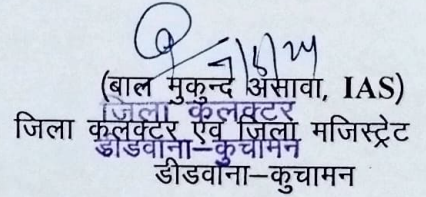 (बाल मुकुन्द असावा, IAS)
जिला कलक्टर
जिला कलक्टर एवं जिला मजिस्ट्रेट
डीडवाना-कुचामन
डीडवाना–कुचामन